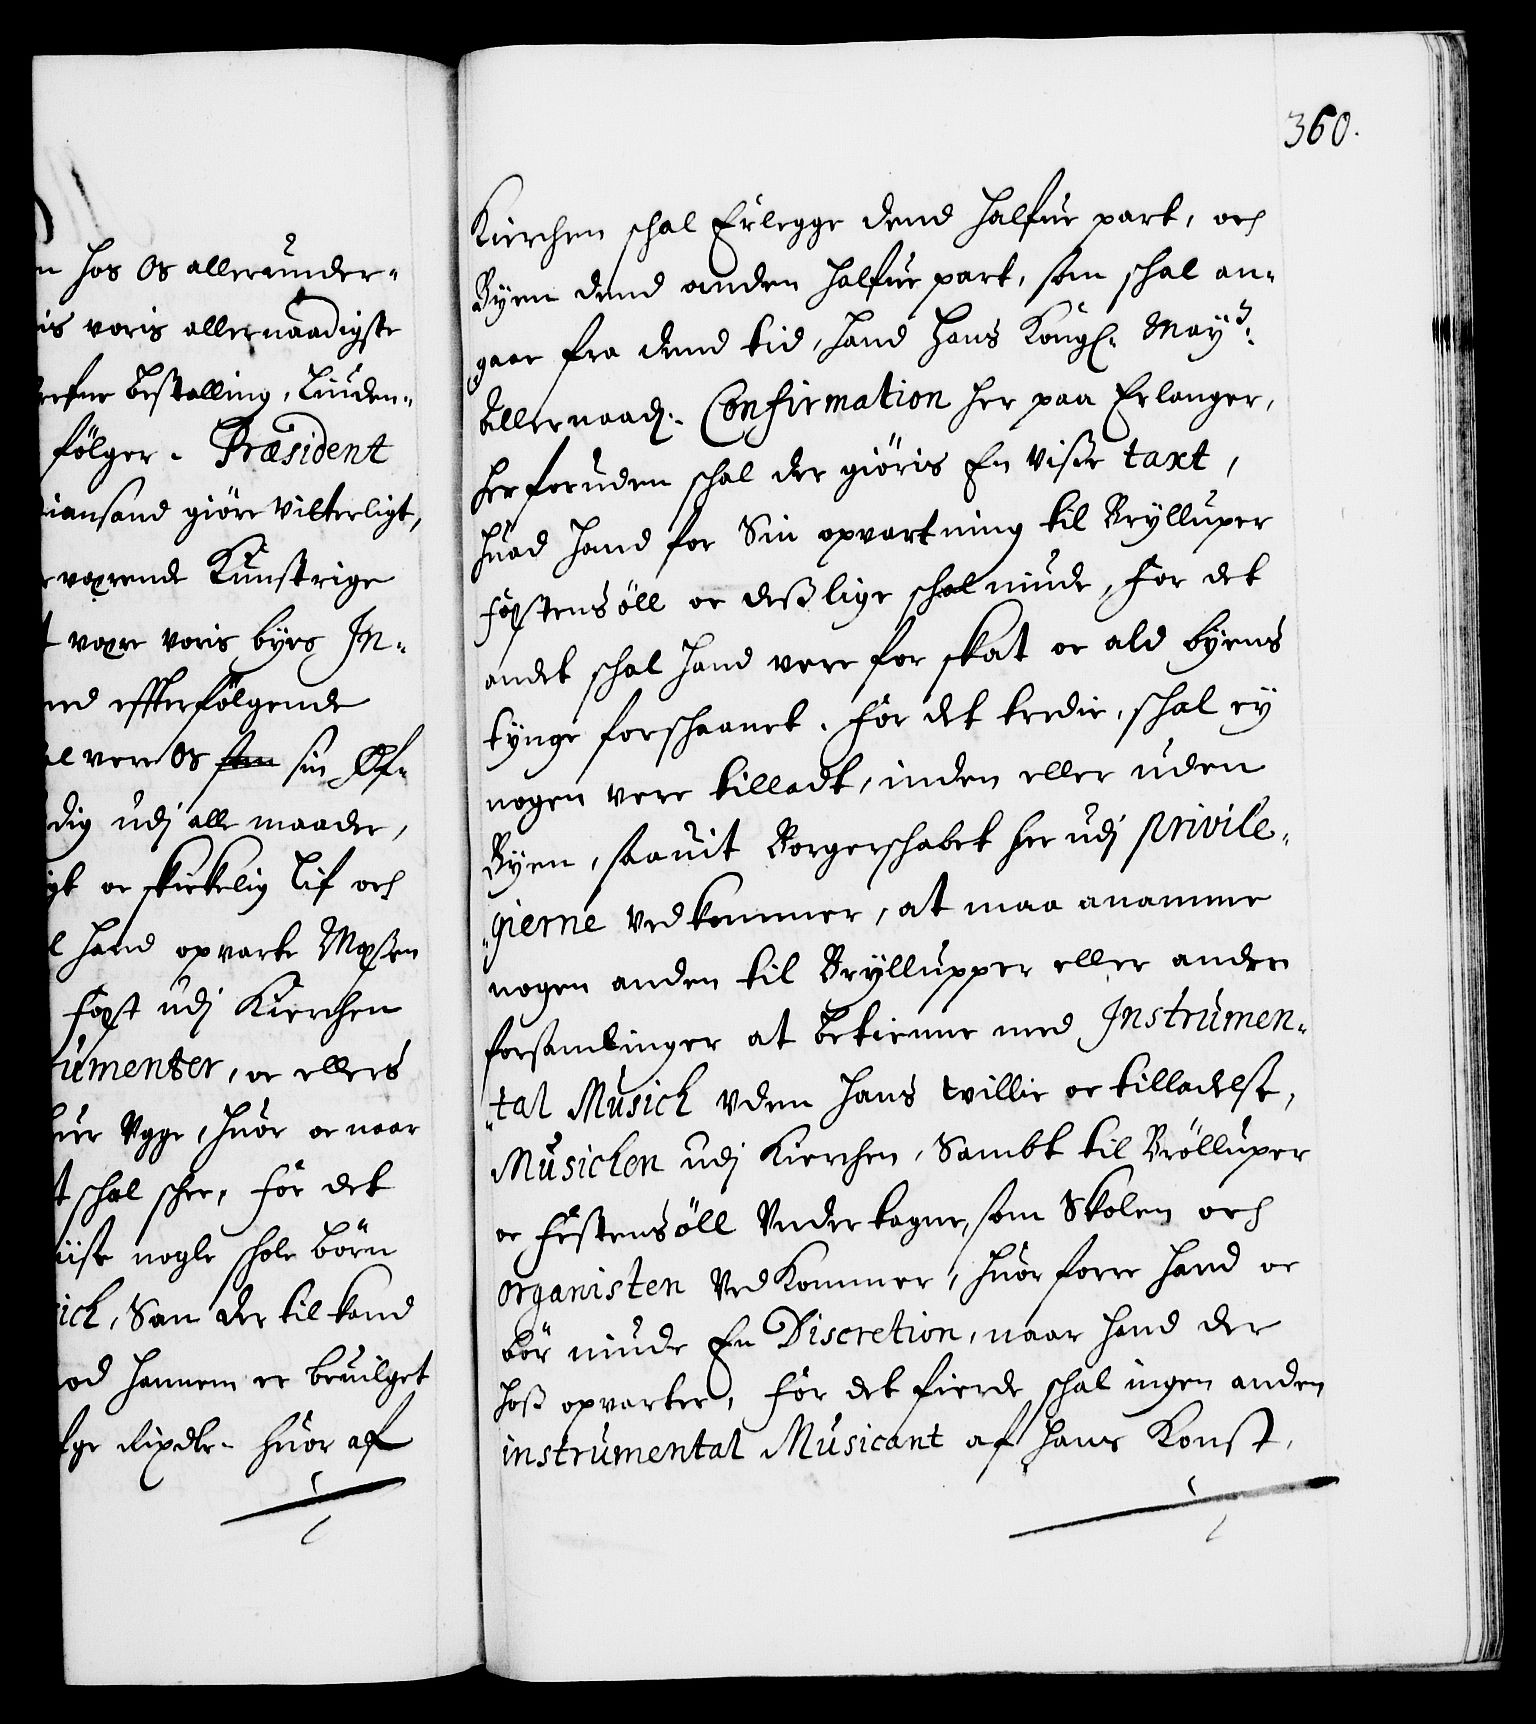 n hos Os allerunder-
is voris allernaadigste
refne bestalling, liuden-
fölger. Præsident
iansand giöre vitterligt,
værende Kunstrige
t være voris byes In-
ed effterfölgende
al vere Os som sin Öf-
dig udj alle maader,
gt oc skickelig lif och
l hand opvarte Messen
Fest udj Kierchen
umenter, oc ellers
huer Vgge, huor oc naar
t schal schee, För det
iise nogle schole börn
ick, Saa der til kand
od hannem er beuilget
tge Rixdlr. huor af
360.
Kierchen schal Erlegge dend halfue part, och
Byen dend anden halfue part, som schal an-
gaae fra dend tid, hand Hans Kongl. May:ts
Allernaad. Confirmation her paa Erlanger,
her foruden schal der giöris En visse taxt,
huad hand for Sin opvartning til Brylluper
Festensöll oc desslige schal niude, For det
andet schal hand vere for skat oc ald byens
tynge forschaanet. För det tredie, schal ey
nogen vere tilladt, inden eller uden
Byen, saauit Borgerschabet her udj privile-
gierne vedkommer, at maa anamme
nogen anden til Bryllupper eller anden
forsamlinger at betienne med Instrumen-
tal Musick Vden hans willie oc tilladelse,
Musicken udj Kierchen, Sambt til Bröllupper
oc Festensöll Vndertagne, som Skolen och
organisten Ved Kommer, huorforre hand oc
bör niude En Discretion, naar hand der
hoss opvarter, För det fierde schal ingen anden
instrumental Musicant af hans Konst,